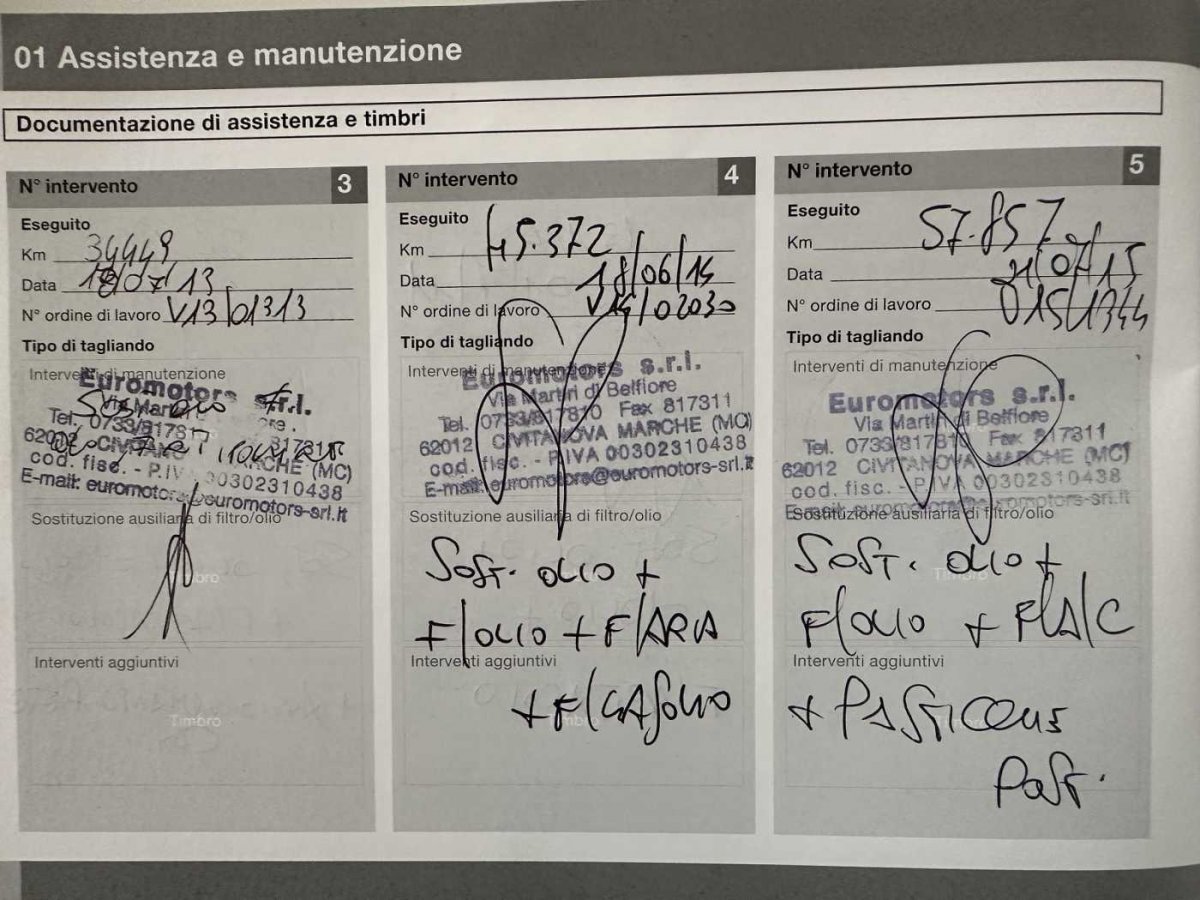 01 Assistenza e manutenzione
Documentazione di assistenza e timbri
N° intervento 3
Eseguito
Km 34449
Data 18/07/13
N° ordine di lavoro V13/01313
Tipo di tagliando
Interventi di manutenzione
Euromotors s.r.l.
Via Martiri
Tel. 0733/817817
62012 CIVITANOVA MARCHE (MC)
cod. fisc. - P.IVA 00302310438
E-mail: euromotors@euromotors-srl.it
Sostituzione ausiliaria di filtro/olio
Timbro
Interventi aggiuntivi
Timbro
N° intervento 4
Eseguito
Km 45.372
Data 18/06/14
N° ordine di lavoro V14/02030
Tipo di tagliando
Interventi di manutenzione
Euromotors s.r.l.
Via Martiri di Belfiore
Tel. 0733/817810 Fax 817311
62012 CIVITANOVA MARCHE (MC)
cod. fisc. - P.IVA 00302310438
E-mail: euromotors@euromotors-srl.it
Sostituzione ausiliaria di filtro/olio
SOST. OLIO +
F/OLIO + F/ARIA
Interventi aggiuntivi
+ F/GASOLIO
N° intervento 5
Eseguito
Km 57.857
Data 21/07/15
N° ordine di lavoro 015/1344
Tipo di tagliando
Interventi di manutenzione
Euromotors s.r.l.
Via Martiri di Belfiore
Tel. 0733/817810 Fax 817311
62012 CIVITANOVA MARCHE (MC)
cod. fisc. - P.IVA 00302310438
E-mail: euromotors@euromotors-srl.it
Sostituzione ausiliaria di filtro/olio
SOST. OLIO +
Timbro
F/OLIO + F/A/C
Interventi aggiuntivi
+ PASTICCHE
POST.